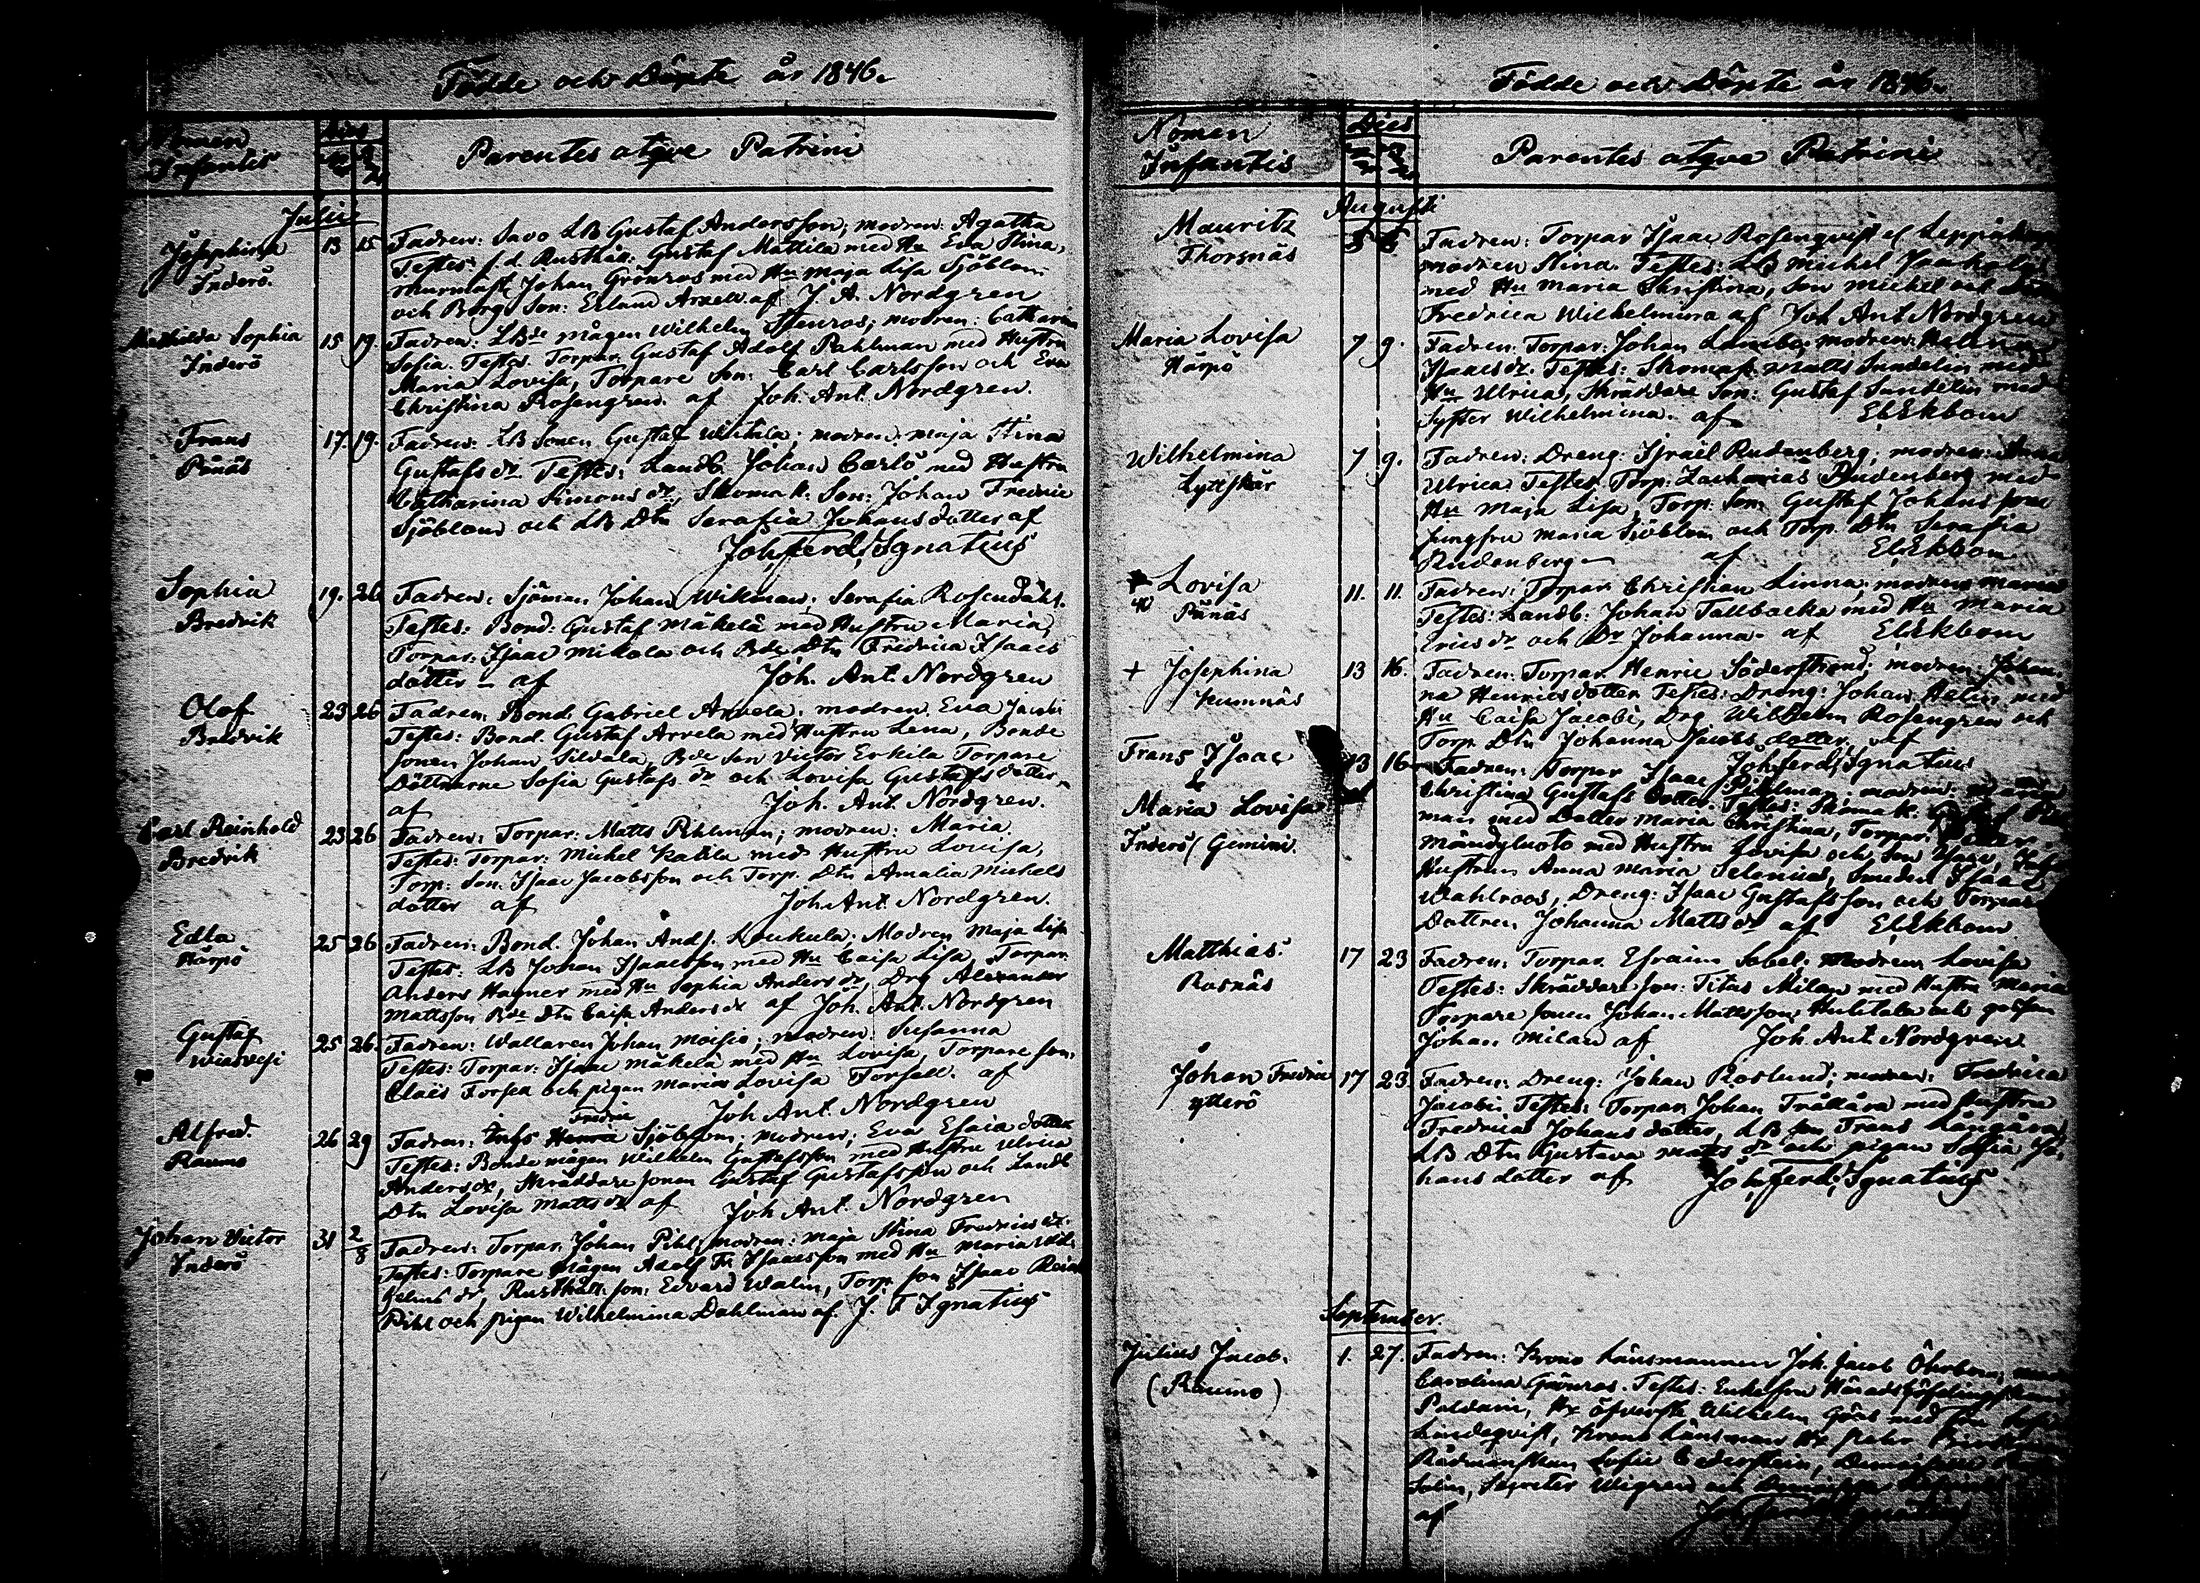 Födde och Döpte år 1846.
Nomen Infantis
Dies
Parentes atqve Patrini
Julii
Josephina
Inderö.
13 15
Fadren: Savo LB Gustaf Andersson; modren: Agatha
Testes: f.d. Rusthåll: Gustaf Mattila med Hu Eva Stina,
Murmäst. Johan Grönroos med Hu Maja Lisa Sjöblom
och Borg. Son: Erland Arvell af J. A. Nordgren
Mathilda Sophia
Inderö
15 19.
Fadren: LBde mågen Wilhelm Stenros; modren: Catharina
Sofia. Testes. Torpar: Gustaf Adolf Pahlman med Hustru
Maria Lovisa, Torpare Son: Carl Carlsson och Eva
Christina Rosengren. af Joh. Ant. Nordgren.
Frans
Pänäs
17. 19.
Fadren: LB Sonen Gustaf Uotila; modren: Maja Stina
Gustafs dr Testes: Landb. Johan Carlö med Hustru
Catharina Simons dr, Skomak: Son: Johan Fredric
Sjöblom och LB Dtn Serafia Johansdotter af
Joh. Ferd. Ignatius
Sophia
Bredvik
19. 26
Fadren: Sjöman Johan Wikman; Serafia Rosendahl.
Testes: Bond: Gustaf Mäkelä med Hustru Maria,
Torpar: Isaac Mikola och Bde Dtn Fredrica Isaacs
dotter – af Joh. Ant. Nordgren
Olof
Bredvik
23 26
Fadren: Bond: Gabriel Arvela; modren Eva Jacobi
Testes: Bond. Gustaf Arvela med Hustru Lena, Bonde
sonen Johan Sildala, Bde Son Victor Erkila Torpare
Döttrarne Sofia Gustafs dr och Lovisa Gustafs dotter
af Joh. Ant. Nordgren.
Carl Reinhold
Bredvik
23 26
Fadren: Torpar: Matts Pihlman; modren: Maria.
Testes: Torpar: Michel Katila med Hustru Lovisa,
Torp: Son: Isaac Jacobsson och Torp. Dtn Amalia Michels
dotter af Joh. Ant. Nordgren.
Edla
Härpö
25 26
Fadren: Bond. Johan Ands. Koukula; Modren Maja Lisa
Testes: LB Johan Isaacsson med Hu Caisa Lisa, Torpar.
Anders Hagner med Hu Sophia Anders dr, Drg Alexander
Mattsson Bde Dtn Caisa Anders dr af Joh. Ant. Nordgren
Gustaf
Wiasvesi
25 26.
Fadren: Wallaren Johan Moisio; modren Susanna
Testes: Torpar: Isaac Mäkelä med Hu Lovisa, Torpare son:
Claës Forsell och pigan Maria Lovisa Forsell. af
Joh. Ant. Nordgren
Alfred.
Raumo
26 29
Fadren: Fredric Sjöblom; modren; Eva Esaia dotter
Testes: Bonde mågen Wilhelm Gustafsson med Hustru Ulrica
Anders dr, Skräddare sonen Gustaf Gustafsson och Landb
Dtn Lovisa Matts dr af Joh. Ant. Nordgren
Johan Victor
Inderö
31 2/8
Fadren: Torpar. Johan Pihl, modren: Maja Stina Fredrics dr.
Testes: Torpare mågen Adolf Fr. Isaacsson med Hu Maria Wil-
helms dr, Rusthåll: son: Edvard Walin, Torp. son Isaac Rein
Pihl och pigan Wilhelmina Dahlman af. J. F. Ignatius
Födde och Döpte år 1846.
Nomen Infantis
Dies
Parentes atqve Patrini
Augusti
Mauritz
Thorsnäs
Fadren: Torpar Isaac Rosenqvist
modren Stina. Testes: LB Michel Jaakola
med Hu Maria Christina, Son Michel och
Fredrica Wilhelmina af Joh. Ant. Nordgren
Maria Lovisa
Härpö
7 9.
Fadren: Torpar: Johan Lamba; modren: Helena
Isaacs dr. Testes: Skomak. Matts Sundelin med
Hu Ulrica, Skräddare Son: Gustaf Sundelin med
Syster Wilhelmina. af El: Ekbom
Wilhelmina
Lyttskär
7 9.
Fadren: Dreng: Israël Rudenberg; modren: Anna
Ulrica. Testes. Torp. Zacharias Rudenberg med
Hu Maja Lisa, Torp. Son. Gustaf Johansson
Jungfru Maria Sjöblom och Torp. Dtn Serafia
Rudenberg – af El: Ekbom
Lovisa
Pänäs
11. 11.
Fadren: Torpar. Christian Linna; modren Maria
Testes: Landb. Johan Tallbacka med Hu Maria
Erics dr och Dr Johanna – af El: Ekbom
+ Josephina
Kumnäs
13 16.
Fadren: Torpar: Henric Söderstrand; modren: Johan-
na Henrics dotter Testes: Dreng: Johan Helin med
Hu Caisa Jacobi, Drg. Wilhelm Rosengren och
Torp Dtn Johanna Jacobs dotter, af
Joh. Ferd. Ignatius
Frans Isaac
&
Maria Lovisa
Inderö / Gemini.
13 16
Fadren: Torpar Isaac Pihlman, modren: Maria
Christina Gustafs dotter. Testes: Skomak:
man med Dotter Maria Christina, Torpar:
Mändyluoto med Hustru Lovisa och Son Isaac,
Hustrun Anna Maria Selenius, Smeden Isaac
Wahlroos, Dreng: Isaac Gustafsson och Torpare
Dottren Johanna Matts dr af El: Ekbom
Matthias.
Rosnäs
17 23
Fadren: Torpar. Efraim Sabel; Modren Lovisa
Testes: Skräddare son: Titus Milan med Hustru Maria
Torpare sonen Johan Mattsson Huhtala och
Johan Milan af Joh. Ant. Nordgren
Johan Fredric
Ytterö
17 23
Fadren: Dreng: Johan Roslund; modren: Fredrica
Jacobi. Testes: Torpar. Johan Trållåra med Hustru
Fredrica Johans dotter, LB son Frans Långåra
LB Dtn Gustava Matts dr och pigan Sofia Jo-
hans dotter af Joh. Ferd. Ignatius
September.
Julius Jacob.
(Raumo)
1. 27.
Fadren: Krono Länsmannen Joh. Jacob Öhrbom,
Carolina Grönroos. Testes: Enkefru
Paldani, Hr Öfverste Wilhelm Göös med
Lindeqvist, Krono Länsman Hr Peter
Rådmanskan Sofie Cederstein,
Solin, Wigren och
af